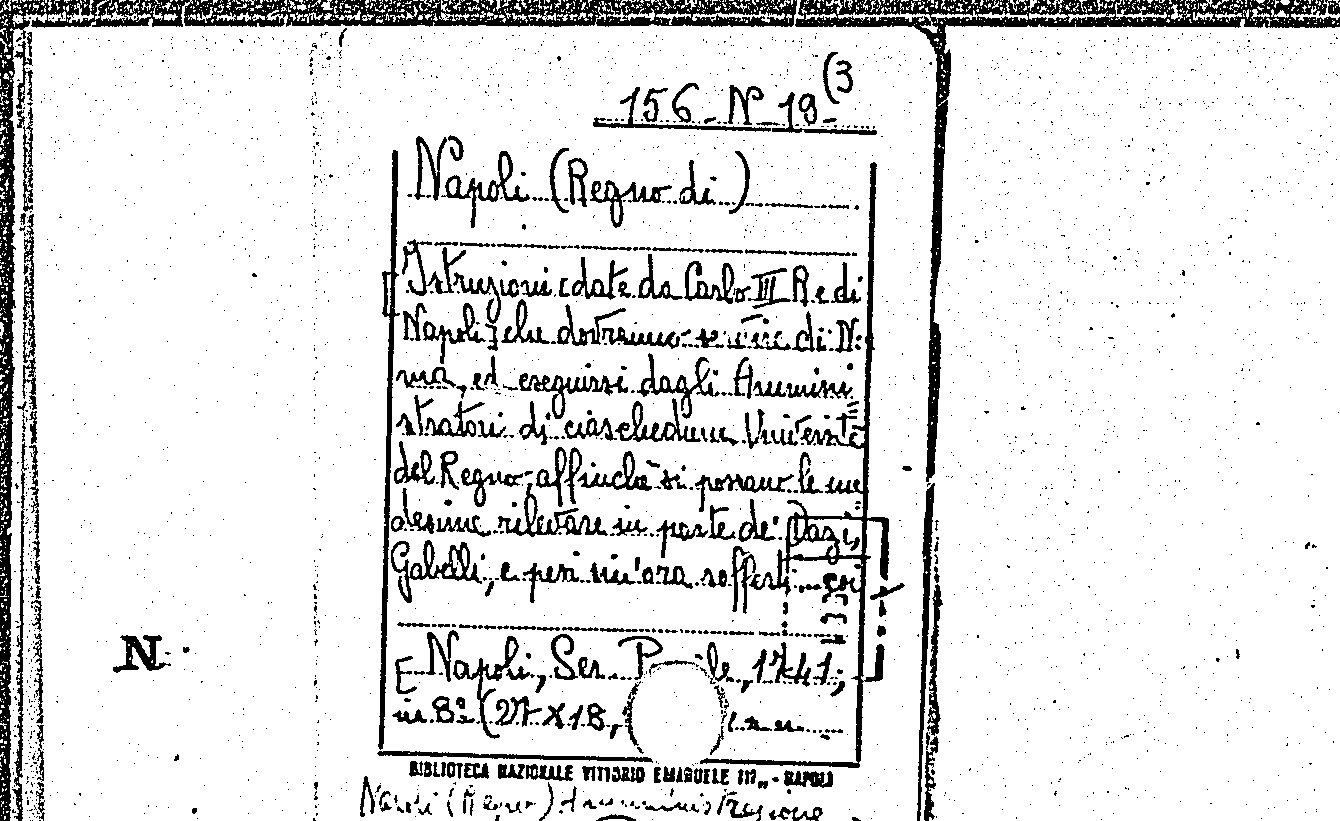 156 - N 19 (3
Napoli (Regno di)
Istruzioni [date da Carlo III Re di
Napoli] che dovranno servire di N:
ma, ed eseguirsi dagli Ammini
stratori di ciascheduna Università
del Regno, affinchè si possano le me
desime rilevare in parte de' Dazi,
Gabelli, e pesi sin'ora sofferti...
[Napoli, Ser. 1741;
in 8º (27 X 18,
BIBLIOTECA NAZIONALE VITTORIO EMANUELE III„ - NAPOLI
Napoli (Regno) Amministrazione
N